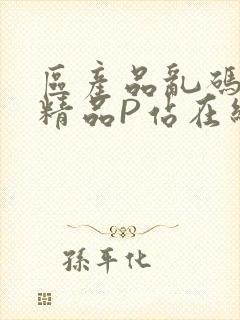 區產品亂碼
精品P佔在
孫平化